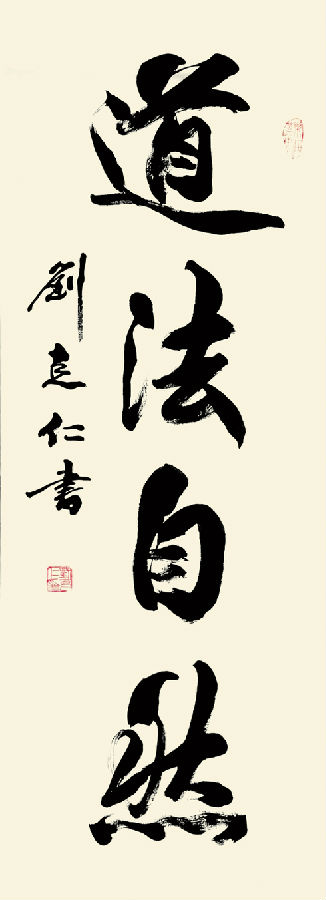 道法自然
劉克仁書